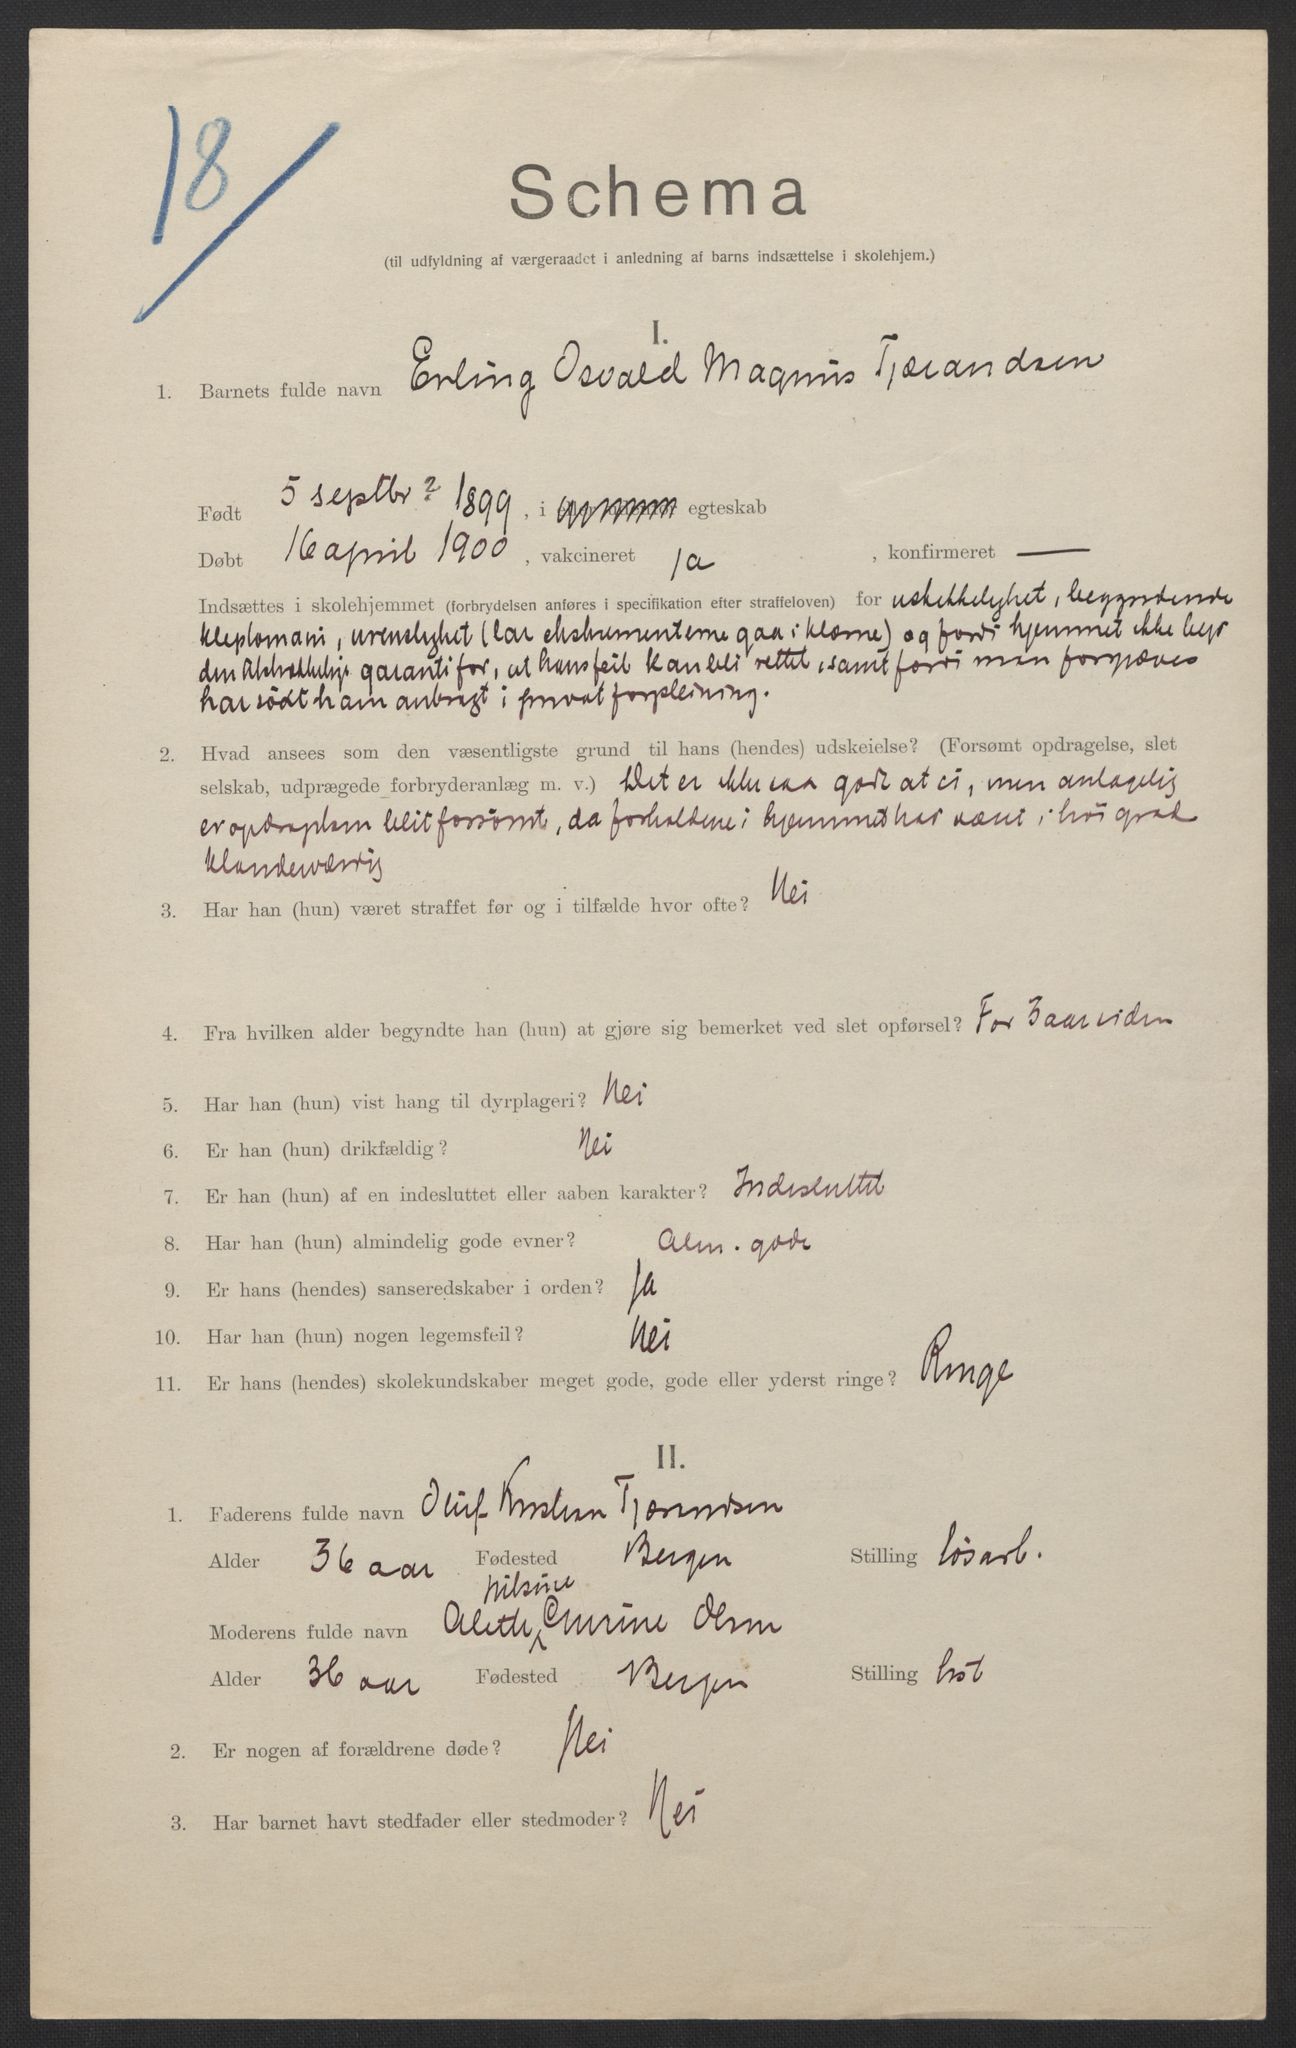 18
Schema
(til udfyldning af værgeraadet i anledning af barns indsættelse i skolehjem.)
I.
1. Barnets fulde navn Erling Osvald Magnus Tjærandsen
Født 5 septbr 1899, i egteskab
Døbt 16 april 1900, vakcineret ja, konfirmeret —
Indsættes i skolehjemmet (forbrydelsen anføres i specifikation efter straffeloven) for uskikkelighet, begyndende
kleptomani, urenslighet (lar ekskrementerne gaa i klærne) og fordi hjemmet ikke byr
den garanti for, at hans feil kan bli rettet, samt fordi man forgjæves
har søkt ham anbragt i privat forpleining.
2. Hvad ansees som den væsentligste grund til hans (hendes) udskeielse? (Forsømt opdragelse, slet
selskab, udprægede forbryderanlæg m. v.) Det er ikke saa godt at si, men antagelig
er opdragelsen blit forsømt, da forholdene i hjemmet har været i høi grad
klanderværdig
3. Har han (hun) været straffet før og i tilfælde hvor ofte? Nei
4. Fra hvilken alder begyndte han (hun) at gjøre sig bemerket ved slet opførsel? For 3 aar siden
5. Har han (hun) vist hang til dyrplageri? Nei
6. Er han (hun) drikfældig? Nei
7. Er han (hun) af en indesluttet eller aaben karakter? Indesluttet
8. Har han (hun) almindelig gode evner? Alm. gode
9. Er hans (hendes) sanseredskaber i orden? Ja
10. Har han (hun) nogen legemsfeil? Nei
11. Er hans (hendes) skolekundskaber meget gode, gode eller yderst ringe? Ringe
II.
1. Faderens fulde navn Oluf Kristian Tjærandsen
Alder 36 aar Fødested Bergen Stilling løsarb.
Nilsine
Moderens fulde navn Alethe Olsen
Alder 36 aar Fødested Bergen Stilling
2. Er nogen af forældrene døde? Nei
3. Har barnet havt stedfader eller stedmoder? Nei